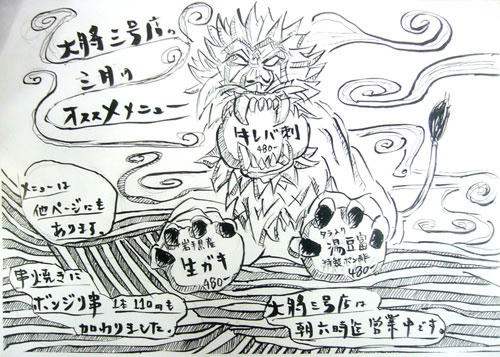 大将三号店の
三月の
オススメメニュー
牛レバ刺
480-
メニューは
他ページにも
あります。
岩手県産
生ガキ
480-
タラ入り
湯豆富
特製ポン酢
480-
串焼きに
ボンジリ串 1本110円も
加わりました。
大将三号店は
朝六時迄営業中です。